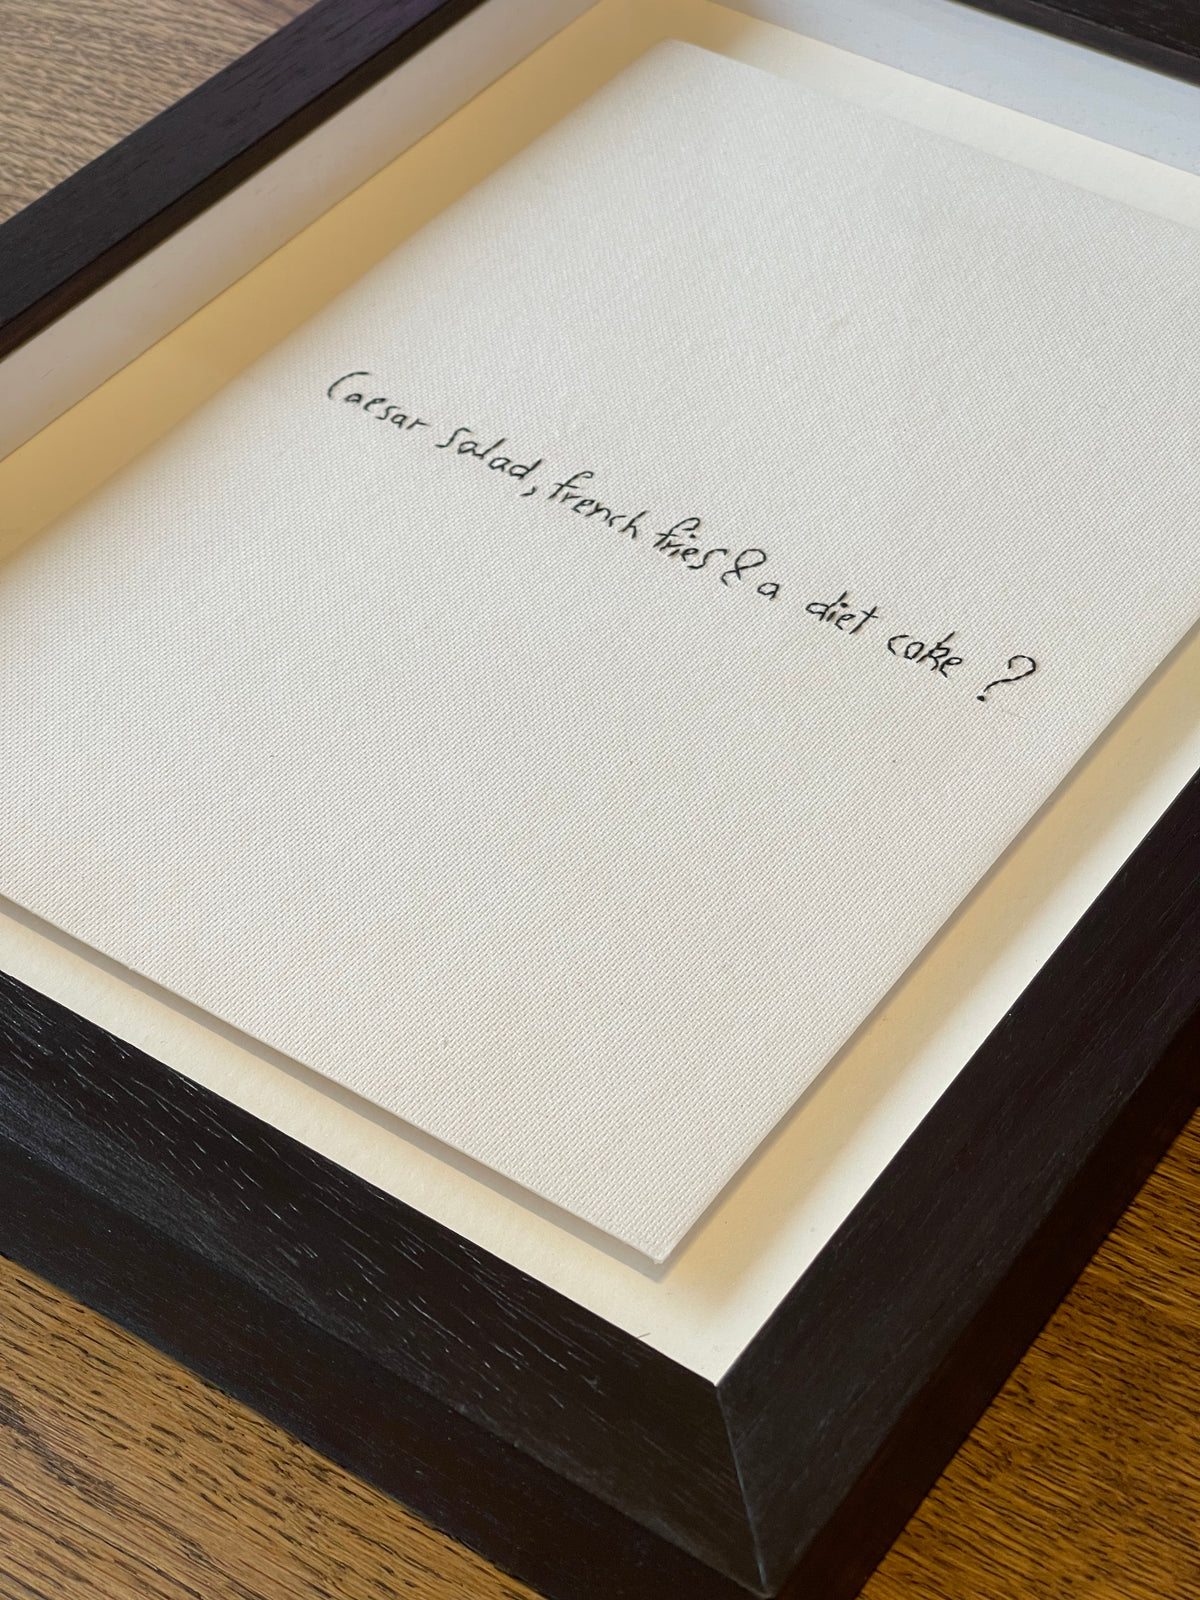 Caesar salad, french fries & a diet coke ?